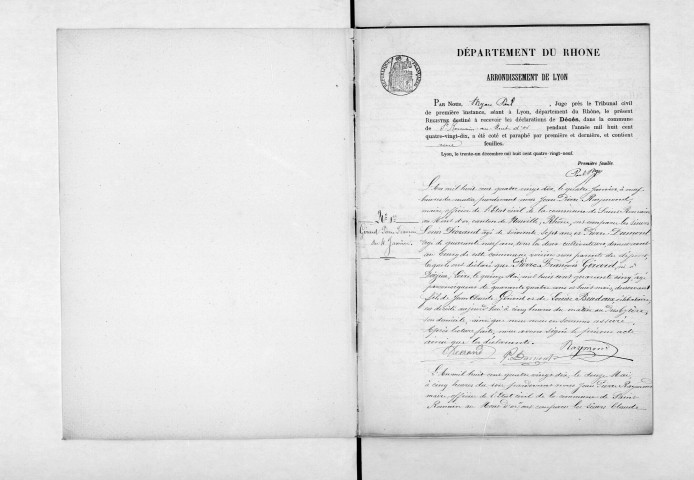 DÉPARTEMENT DU RHONE
ARRONDISSEMENT DE LYON
PAR NOUS, , Juge près le Tribunal civil
de première instance, séant à Lyon, département du Rhône, le présent
REGISTRE destiné à recevoir les déclarations de Décès, dans la commune
de St Romain au Mont d'or pendant l'année mil huit cent
quatre-vingt-dix, a été coté et paraphé par première et dernière, et contient
feuilles.
Lyon, le trente-un décembre mil huit cent quatre-vingt-neuf.
Première feuille.
L'an mil huit cent quatre vingt dix, le quatre Janvier, à neuf
heures du matin, pardevant nous Jean Pierre Raymond,
maire, officier de l'Etat civil de la commune de Saint Romain
au Mont d'or canton de Neuville, Rhône, ont comparu les sieurs
No 1er
Louis âgé de soixante sept ans et Pierre
du 4 Janvier
âgé de quarante ans, tous deux cultivateurs demeurant
au bourg de cette commune, voisins non parents du défunt,
lesquels ont déclaré que Pierre François Girard, né à
le quinze Mai mil huit cent quarante cinq, âgé
par conséquent de quarante quatre ans et huit mois, demeurant
fils de Jean Claude Girard et de Louise célibataire,
est décédé aujourd'hui à cinq heures du matin
son domicile, ainsi que nous nous en sommes assuré.
Après lecture faite, nous avons signé le présent acte
avec les déclarants.
Raymond
L'an mil huit cent quatre vingt dix, le douze Mai
à cinq heures du soir pardevant nous Jean Pierre Raymond
maire, officier de l'Etat civil de la commune de Saint
Romain au Mont d'or ont comparu les sieurs Claude